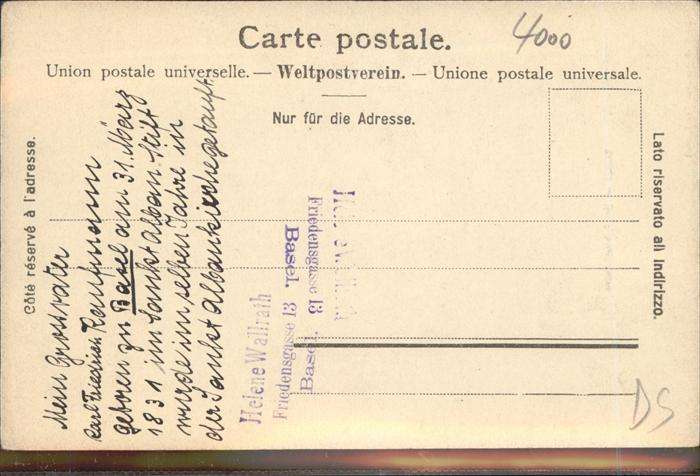 Carte postale.
4000
Union postale universelle. — Weltpostverein. — Unione postale universale.
Nur für die Adresse.
Côté réservé à l'adresse.
Lato riservato all indirizzo.
Mein Grossvater
Karl Friedrich Kaufmann
geboren zu Basel am 31. März
1831 im Sankt Alban-Stift
wurde im selben Jahre in
der Sankt Albankirche getauft.
Helene Wallrath
Friedensgasse 13
Basel.
Friedensgasse 13
Basel.
DS